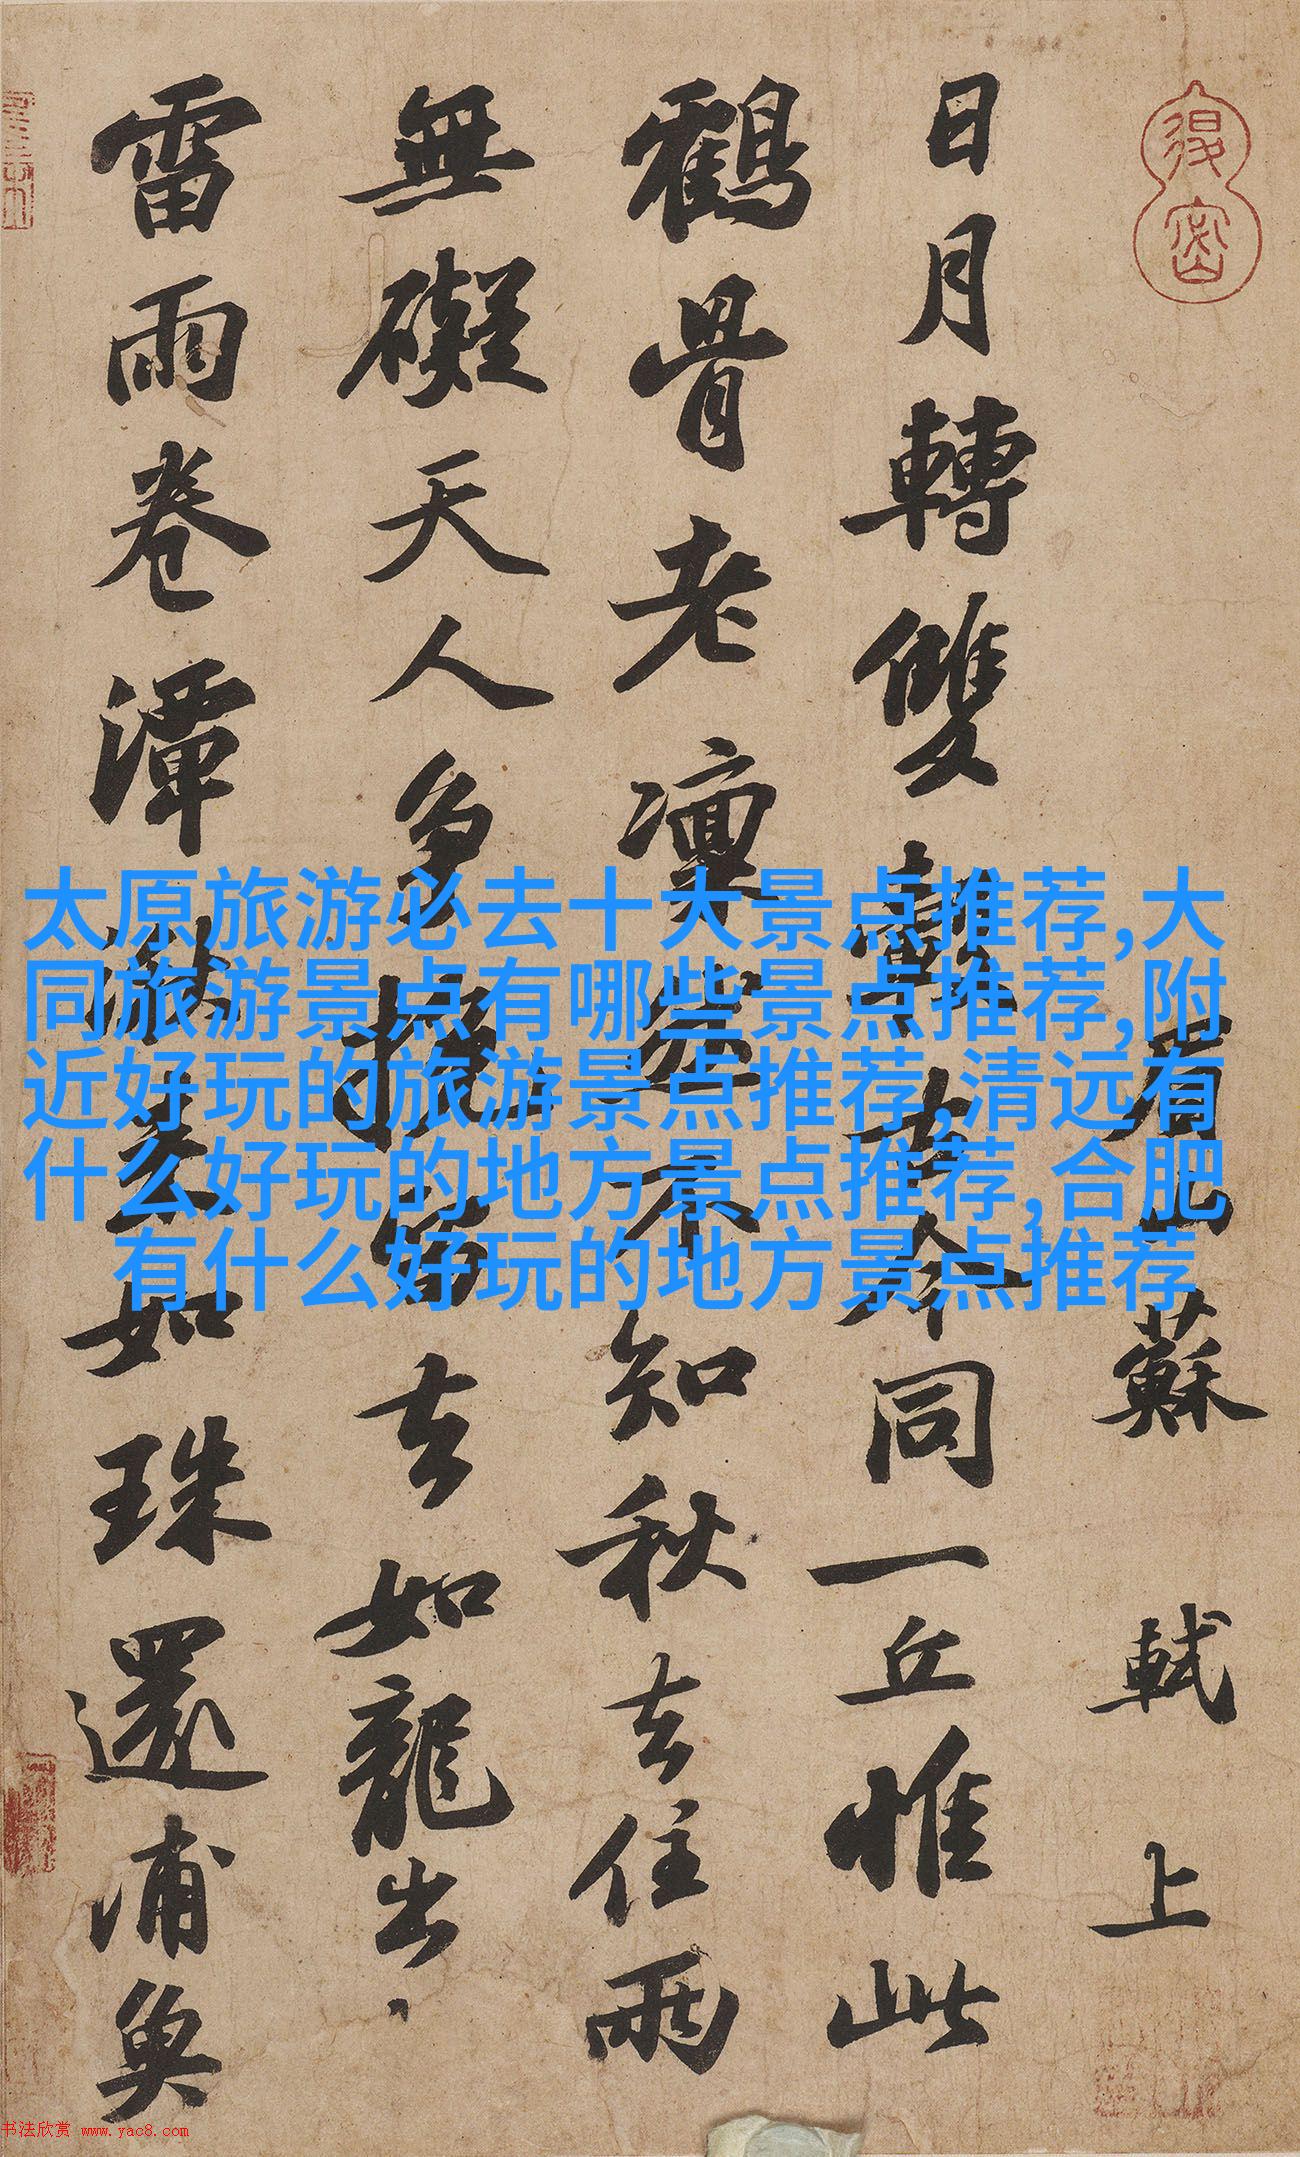 眉山蘇軾上
日月轉雙轂古今同一丘惟此
鶴骨老凜然不知秋去住兩
無礙天人爭挽留去如龍出
雷雨卷潭湫来如珠還浦魚
太原旅游必去十大景点推荐,大
同旅游景点有哪些景点推荐,附
近好玩的旅游景点推荐,清远有
什么好玩的地方景点推荐,合肥
有什么好玩的地方景点推荐
书法欣赏 www.yac8.com